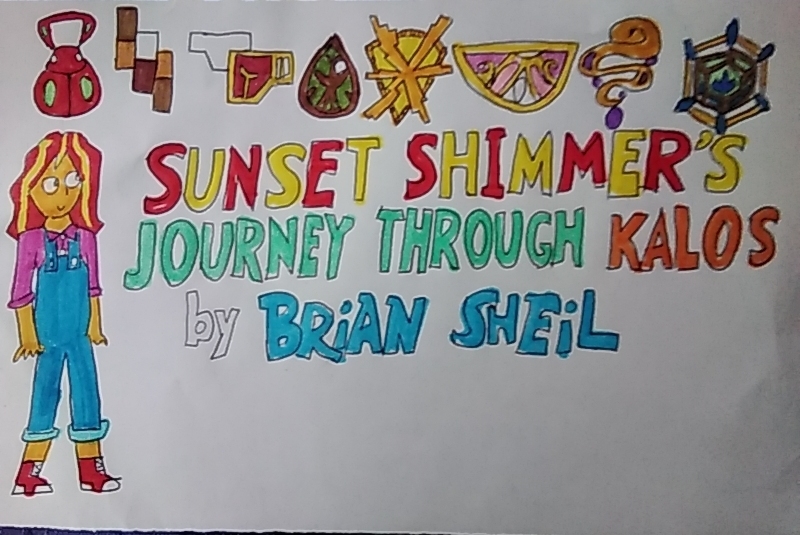 SUNSET SHIMMER'S
JOURNEY THROUGH KALOS
by BRiAN SHEiL